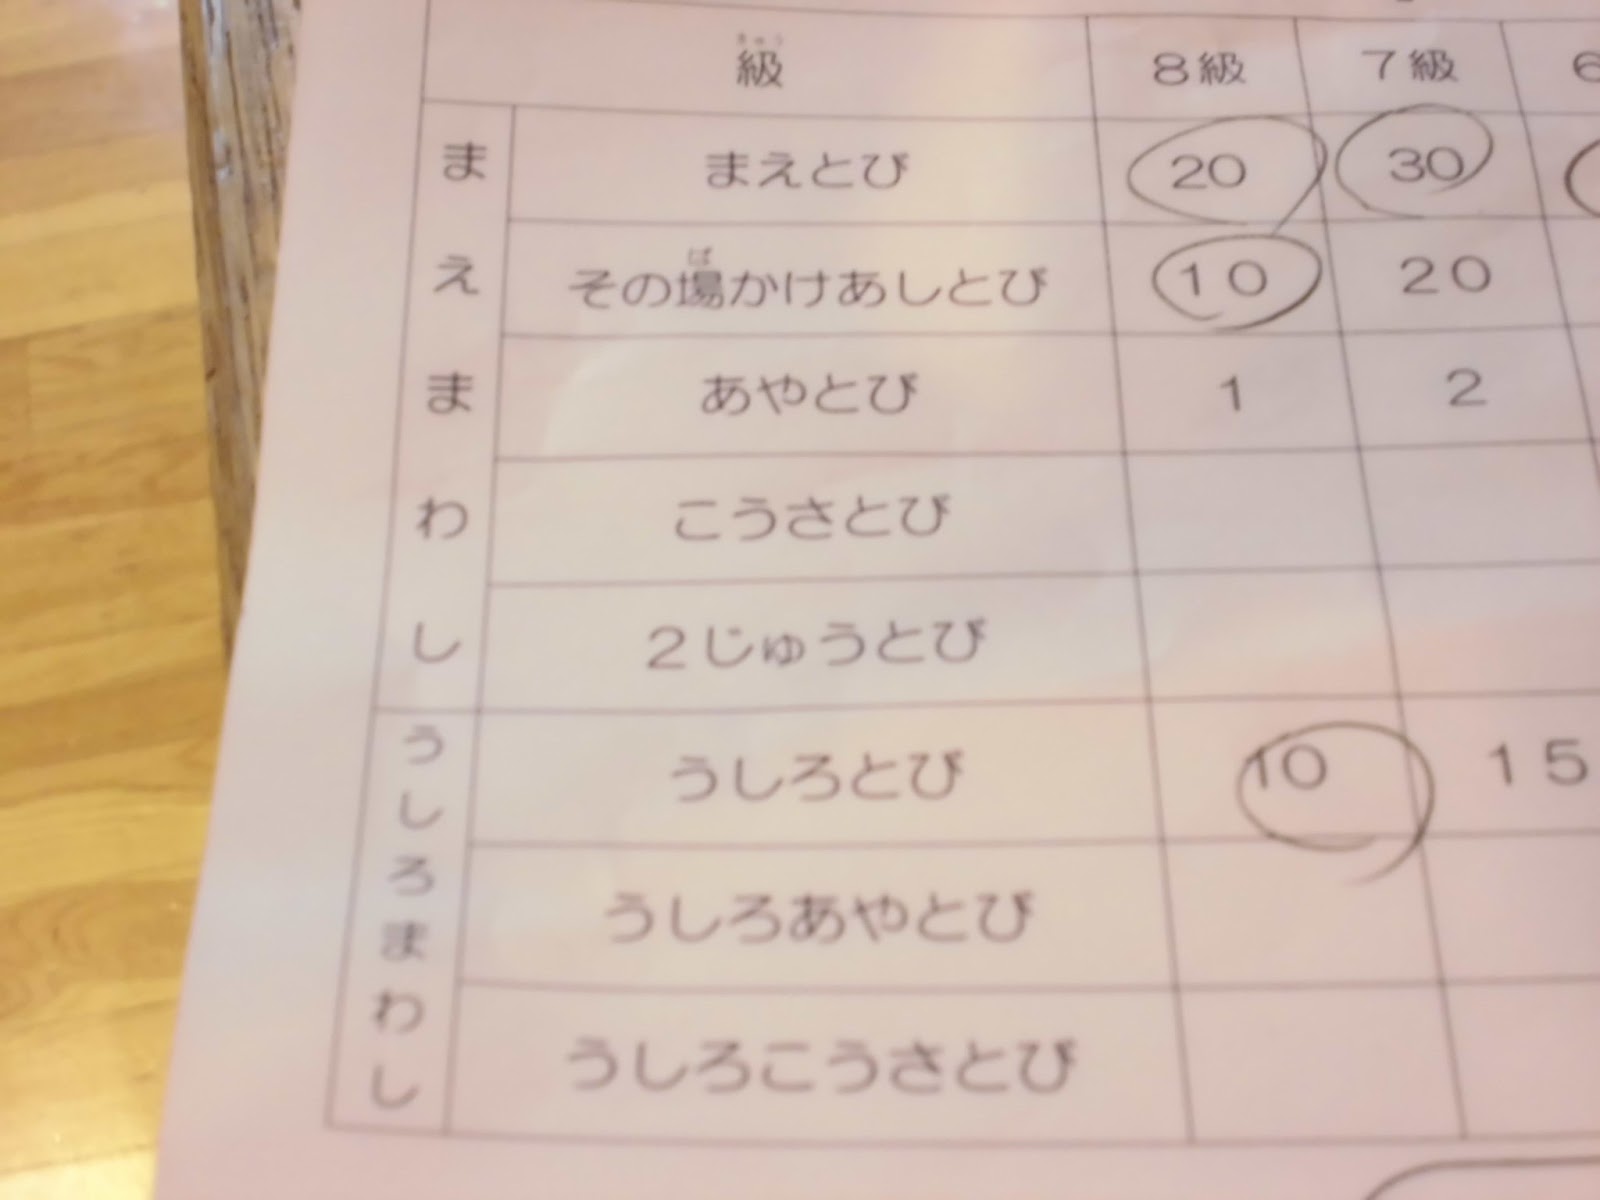 きゅう
級 8級 7級 6
まえまわし
まえとび 20 30
ば
その場かけあしとび 10 20
あやとび 1 2
こうさとび
2じゅうとび
うしろまわし
うしろとび 10 15
うしろあやとび
うしろこうさとび